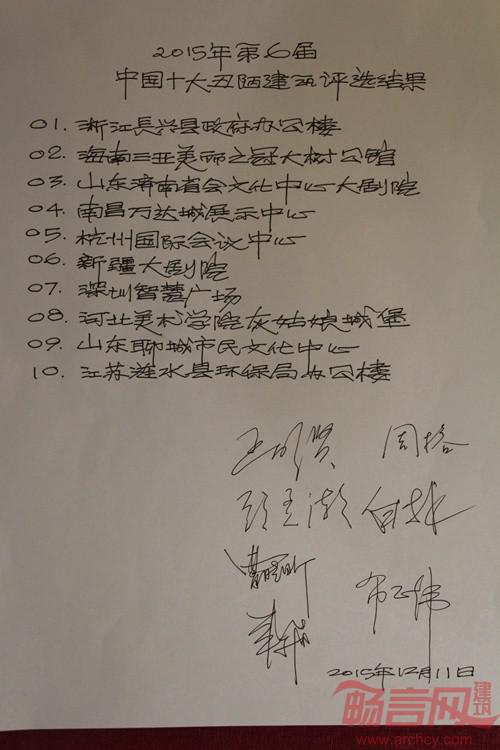 2015年第6届
中国十大丑陋建筑评选结果
01. 浙江長兴县政府办公楼
02. 海南三亚美丽之冠大树公馆
03. 山东濟南省会文化中心大剧院
04. 南昌万达城展示中心
05. 杭州国际会议中心
06. 新疆大剧院
07. 深圳智慧广场
08. 河北美术学院灰姑娘城堡
09. 山东聊城市民文化中心
10. 江苏涟水县环保局办公楼
王明贤 周榕
顾孟潮
布正伟
2015年12月11日
畅言网
建筑
www.archcy.com